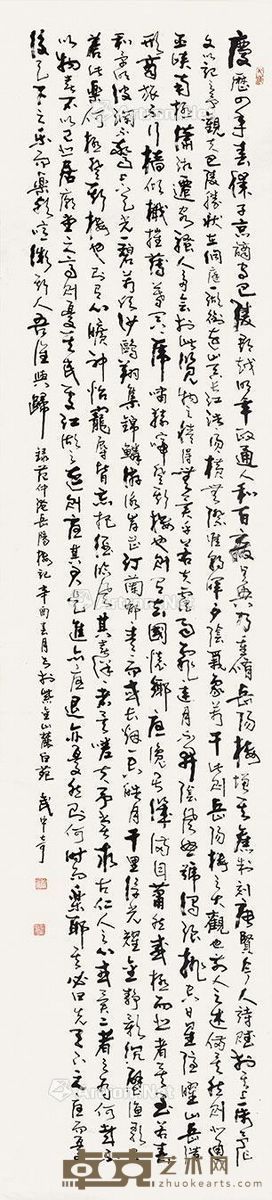 慶曆四年春滕子京謫守巴陵郡越明年政通人和百廢具興乃重修岳陽樓增其舊制刻唐賢今人詩賦於其上屬予作
文以記之予觀夫巴陵勝狀在洞庭一湖銜遠山吞長江浩浩湯湯橫無際涯朝暉夕陰氣象萬千此則岳陽樓之大觀也前人之述備矣然則北通
巫峽南極瀟湘遷客騷人多會於此覽物之情得無異乎若夫霪雨霏霏連月不開陰風怒號濁浪排空日星隱曜山岳潛
形商旅不行檣傾楫摧薄暮冥冥虎嘯猿啼登斯樓也則有去國懷鄉憂讒畏譏滿目蕭然感極而悲者矣至若春
和景明波瀾不驚上下天光一碧萬頃沙鷗翔集錦鱗游泳岸芷汀蘭郁郁青青而或長煙一空皓月千里浮光耀金靜影沉璧漁歌
互答此樂何極登斯樓也則有心曠神怡寵辱皆忘把酒臨風其喜洋洋者矣嗟夫予嘗求古仁人之心或異二者之為何哉不
以物喜不以己悲居廟堂之高則憂其民處江湖之遠則憂其君是進亦憂退亦憂然則何時而樂耶其必曰先天下之憂而憂
後天下之樂而樂歟噫微斯人吾誰與歸 錄范仲淹岳陽樓記辛酉春月書於紫金山麓白苑 武中奇
卓克艺术网
www.zhuokearts.com